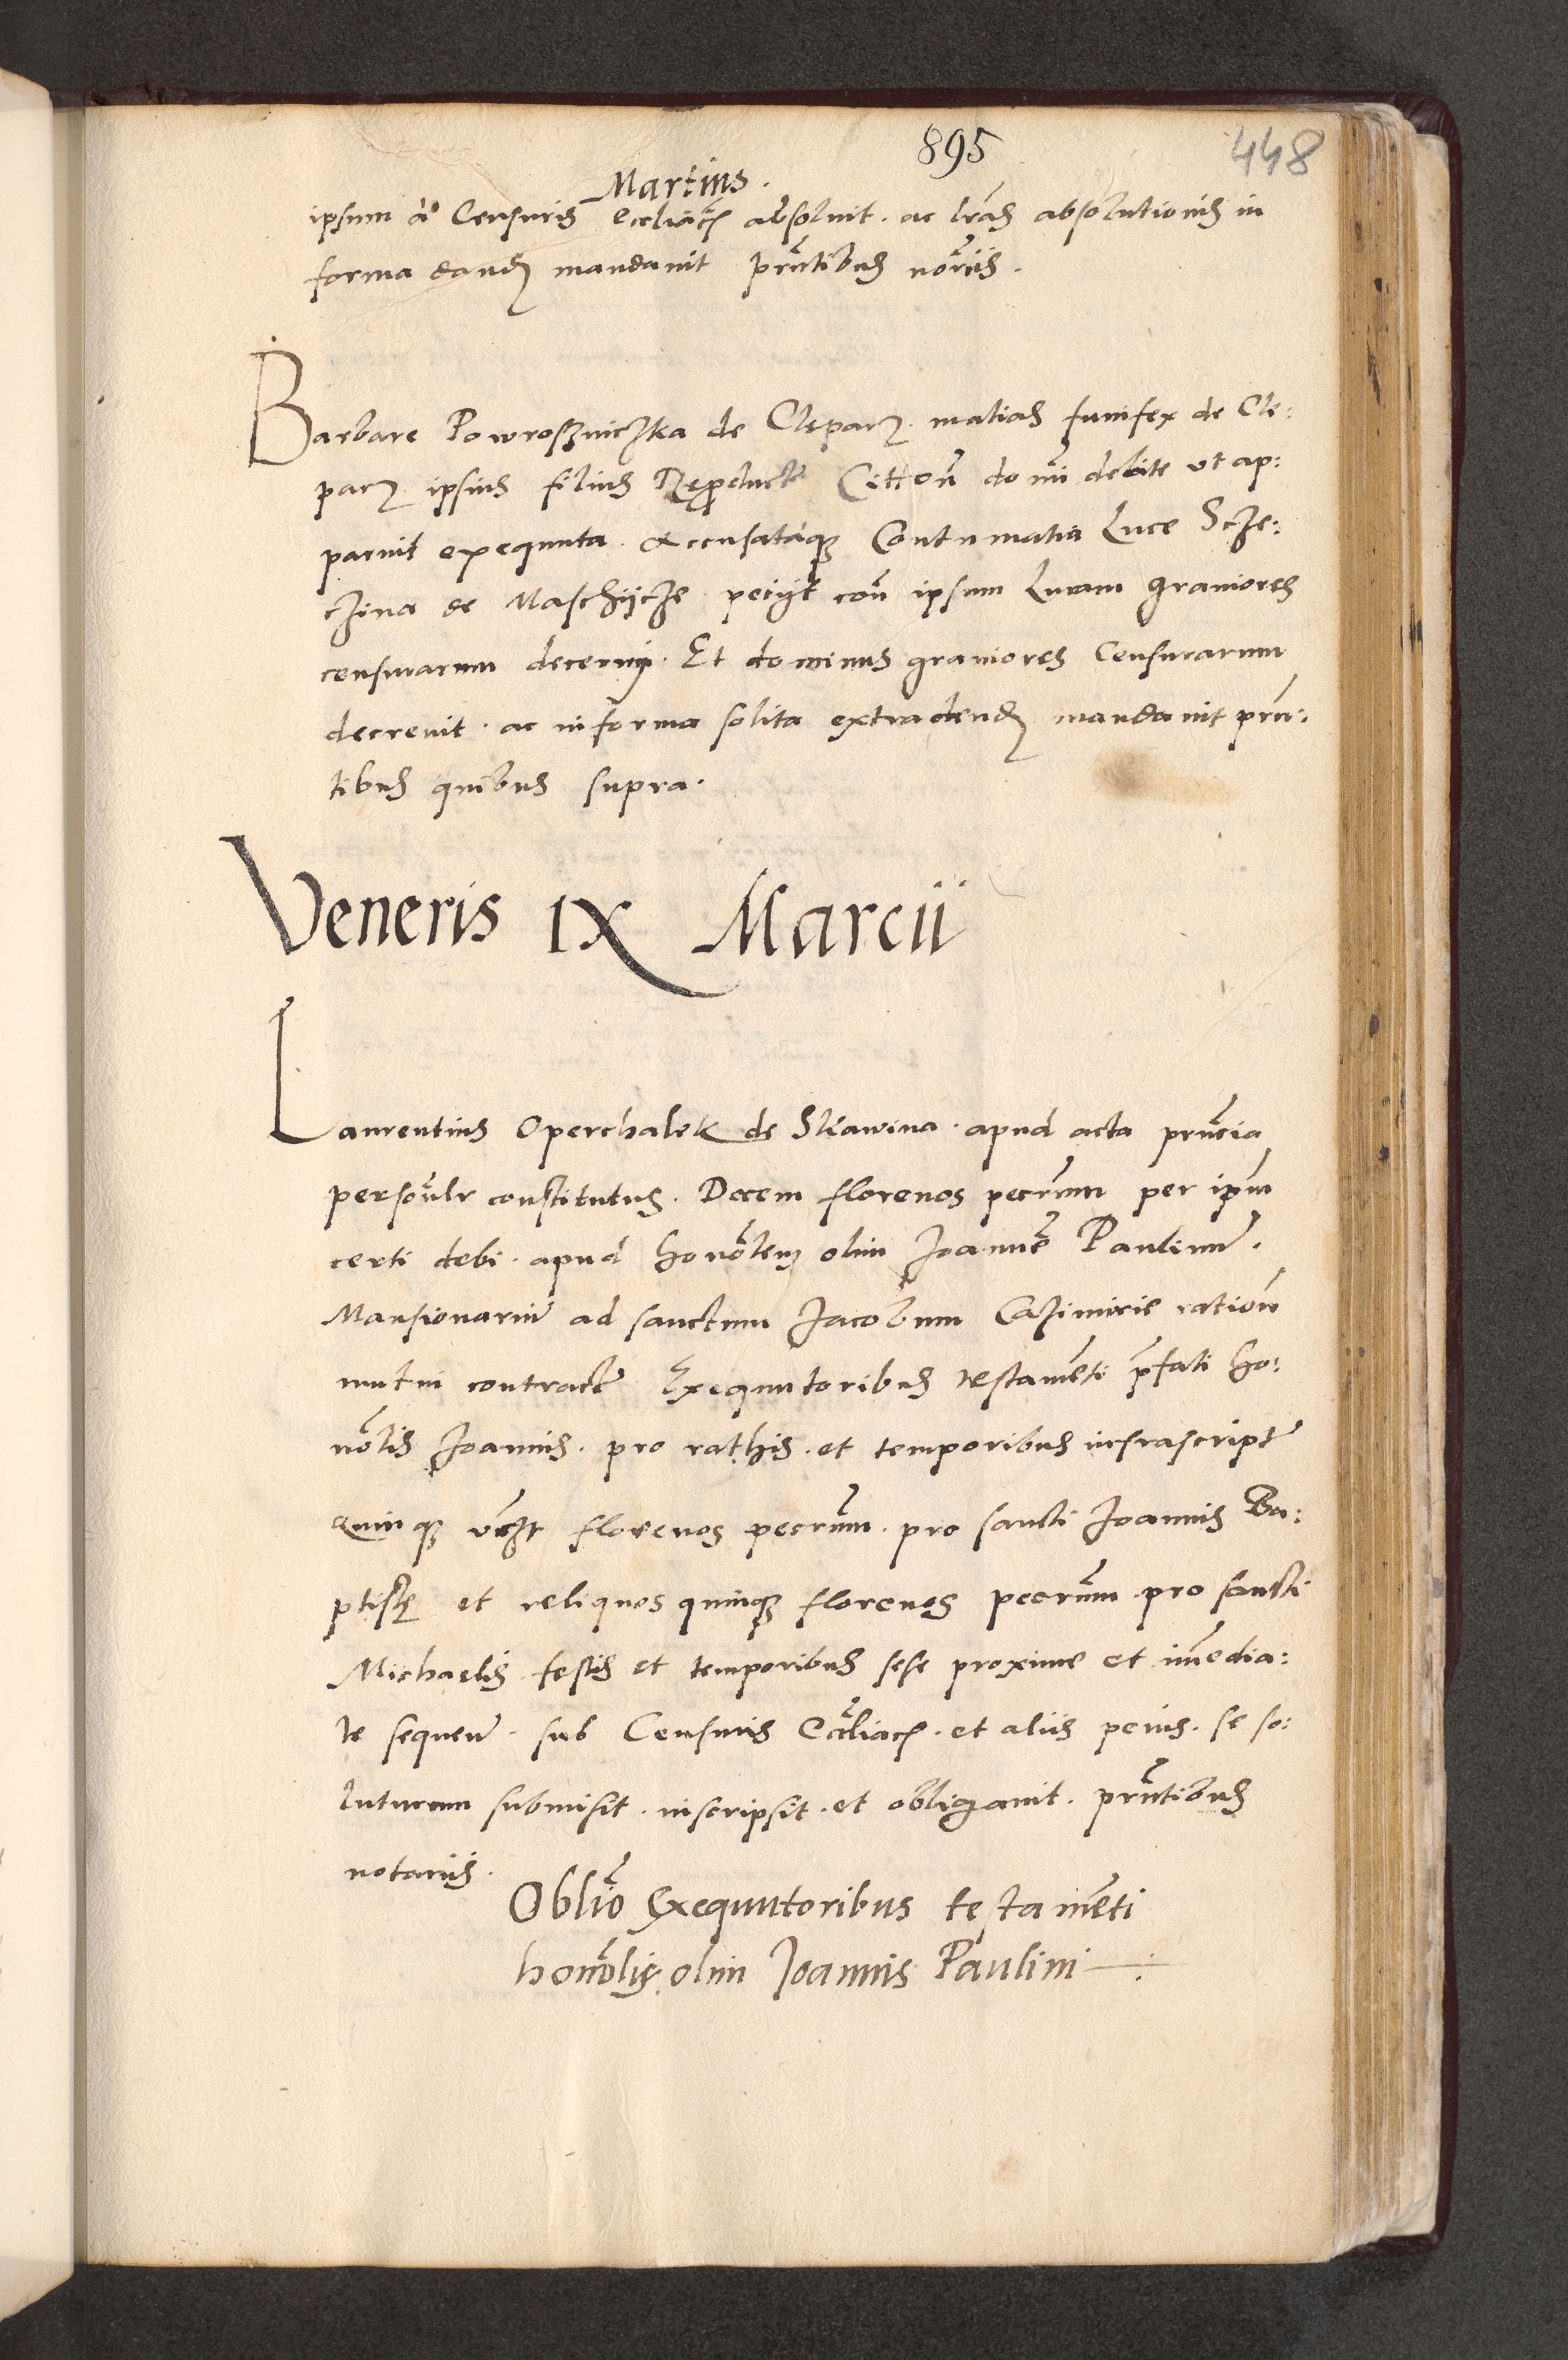 895
448
Martius.
ipsum à Censuris Eccliaċꝭ absoluit. ac lr̃as absolutionis in
forma dandã mandauit pñtibus nõriis.
Barbare Powroszniczka de Clepar. matias funifex de Cle:
par. ipsius filius Reproducta Cittoñ domi debite ut ap:
paruit exequuta. Accusataque Contumatia Luce
de petiit coñ ipsum Lucam grauiores
censurarum decerni. Et dominus grauiores Censurarum
decreuit. ac in forma solita extradendã mandauit pñ:
tibus quibus supra.
Veneris IX Marcii
Laurentius Operchalek de Skawina. apud acta pñcia
personalr constitutus. Decem florenos pecuniarum per ipm
certi debi. apud honolem olim Joannẽ Paulinũ.
Mansionariũ ad sanctum Jacobum Cazimirie ration
mutui contracti Exequutoribus testamẽti p̃fati ho:
nolis Joannis. pro rathis. et temporibus infrascript
Quinque florenos pecrum. pro sancti Joannis Ba:
ptistę et reliquos quinque florenos pecrum. pro sancti
Michaelis festis et temporibus sese proxime et im̃edia:
te sequeñ. sub Censuris Eccliacꝭ. et aliis penis. se so:
luturum submisit. inscripsit. et obligauit. pñtibus
notariis.
Oblĩo Exequutoribus testamẽti
honolis olim Joannis Paulini